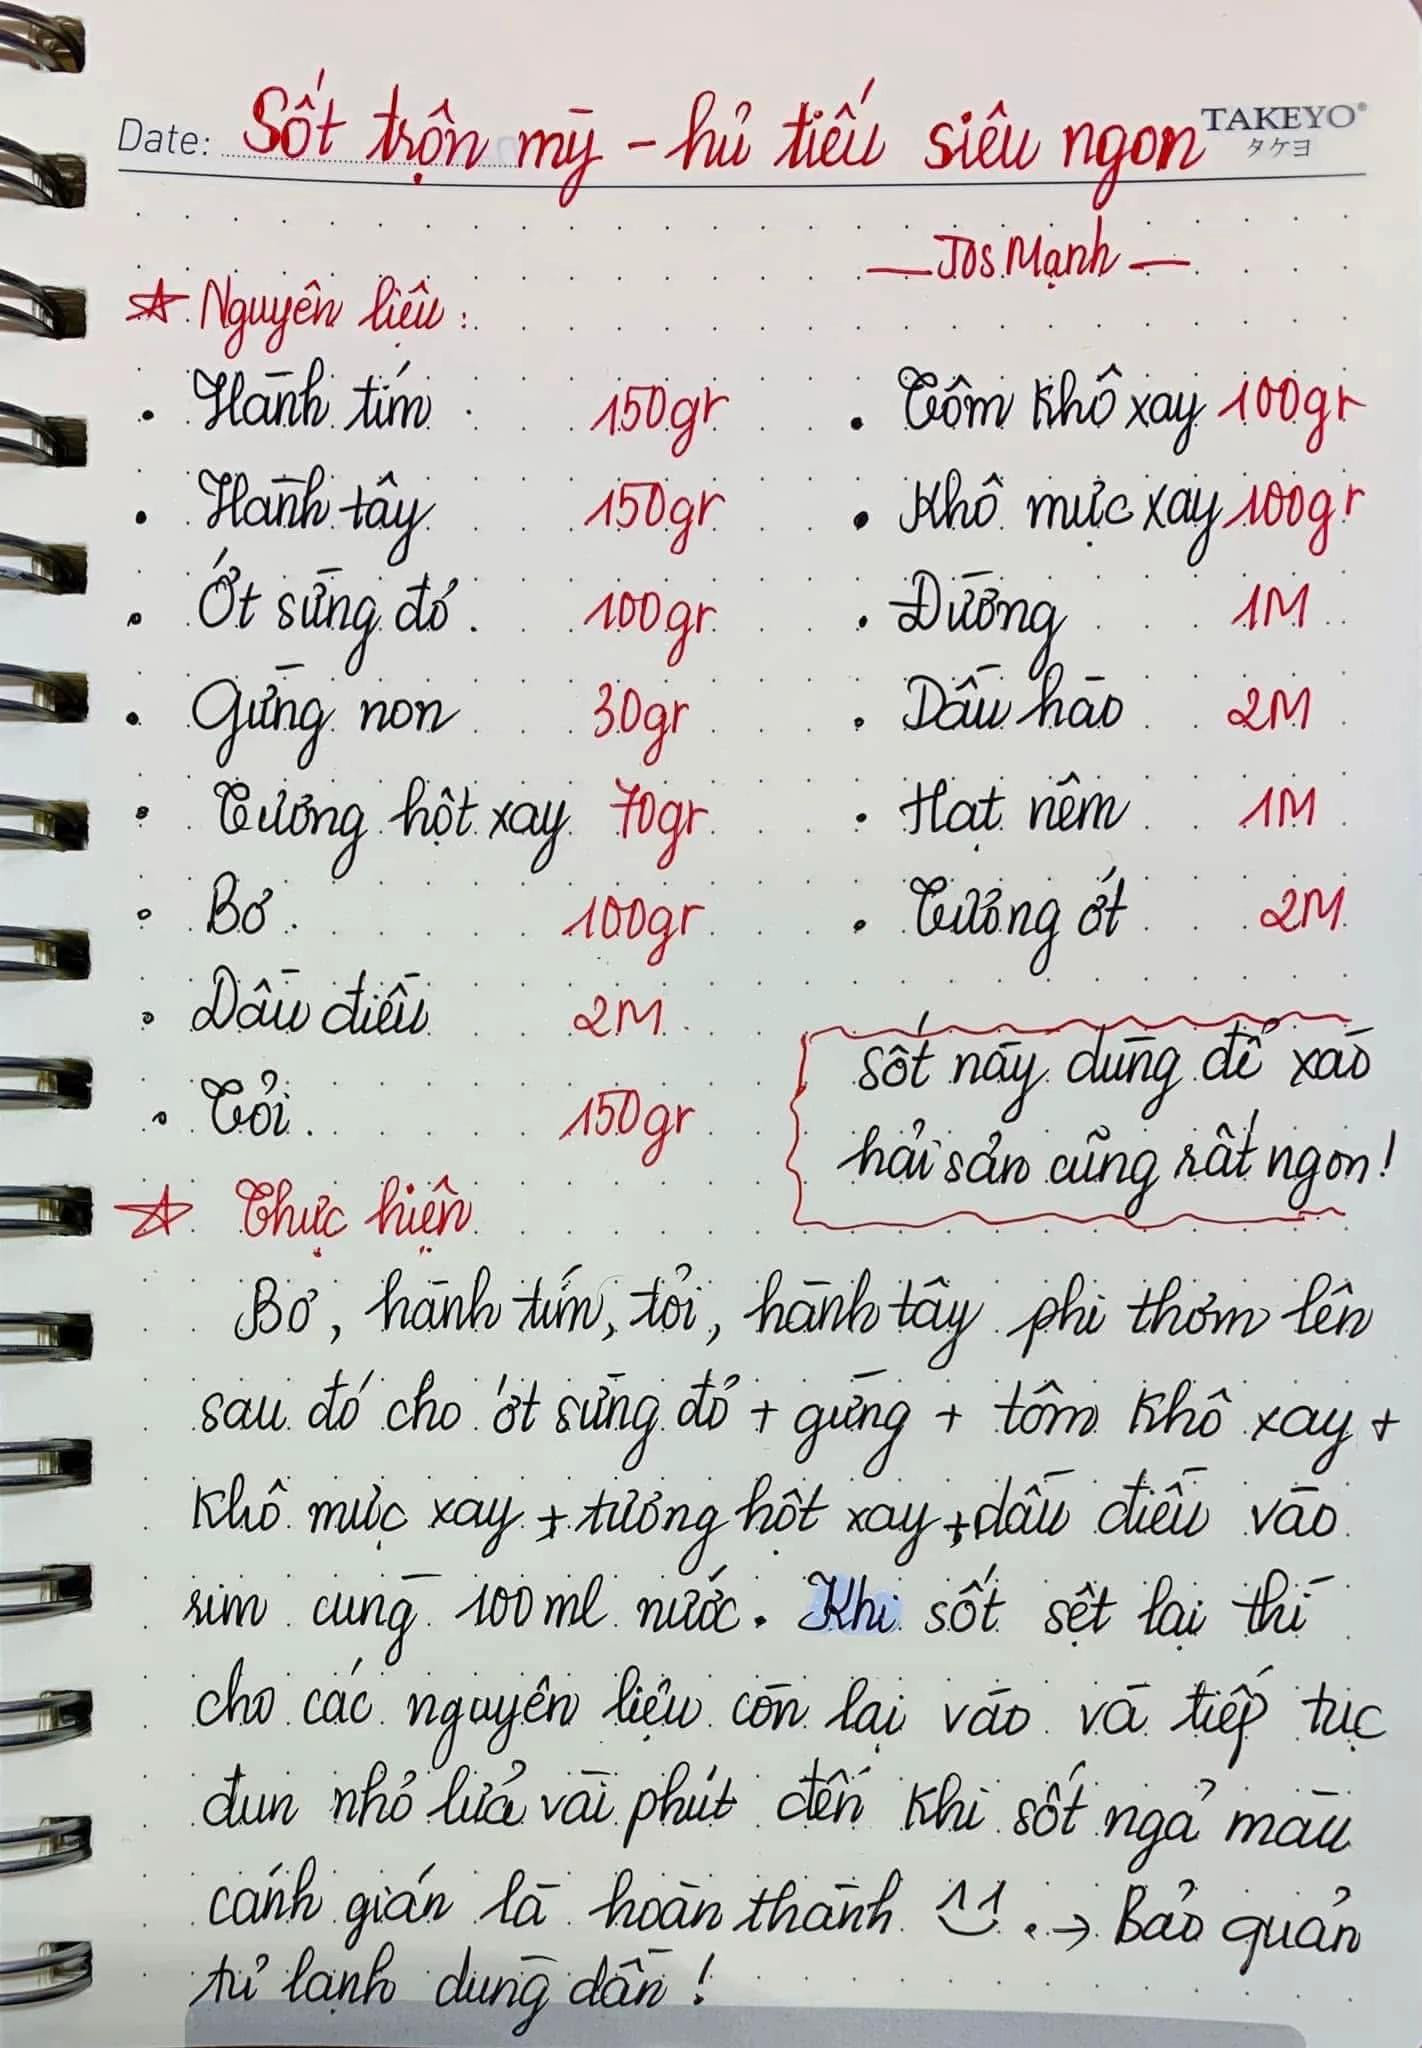 Date: Sốt trộn mỳ - hủ tiếu siêu ngon
TAKEYO®
タケヨ
— Jos Mạnh —
☆ Nguyên liệu:
• Hành tím 150gr
• Hành tây 150gr
• Ớt sừng đỏ 100gr
• Gừng non 30gr
• Tương hột xay 70gr
• Bơ 100gr
• Dầu điều 2M
• Tỏi 150gr
• Tôm khô xay 100gr
• Khô mực xay 100gr
• Đường 1M
• Dầu hào 2M
• Hạt nêm 1M
• Tương ớt 2M
Sốt này dùng để xào
hải sản cũng rất ngon!
☆ Thực hiện
Bơ, hành tím, tỏi, hành tây phi thơm lên
sau đó cho ớt sừng đỏ + gừng + tôm khô xay +
khô mực xay + tương hột xay + dầu điều vào
rim cùng 100ml nước. Khi sốt sệt lại thì
cho các nguyên liệu còn lại vào và tiếp tục
đun nhỏ lửa vài phút đến khi sốt ngả màu
cánh gián là hoàn thành. → Bảo quản
tủ lạnh dùng dần!